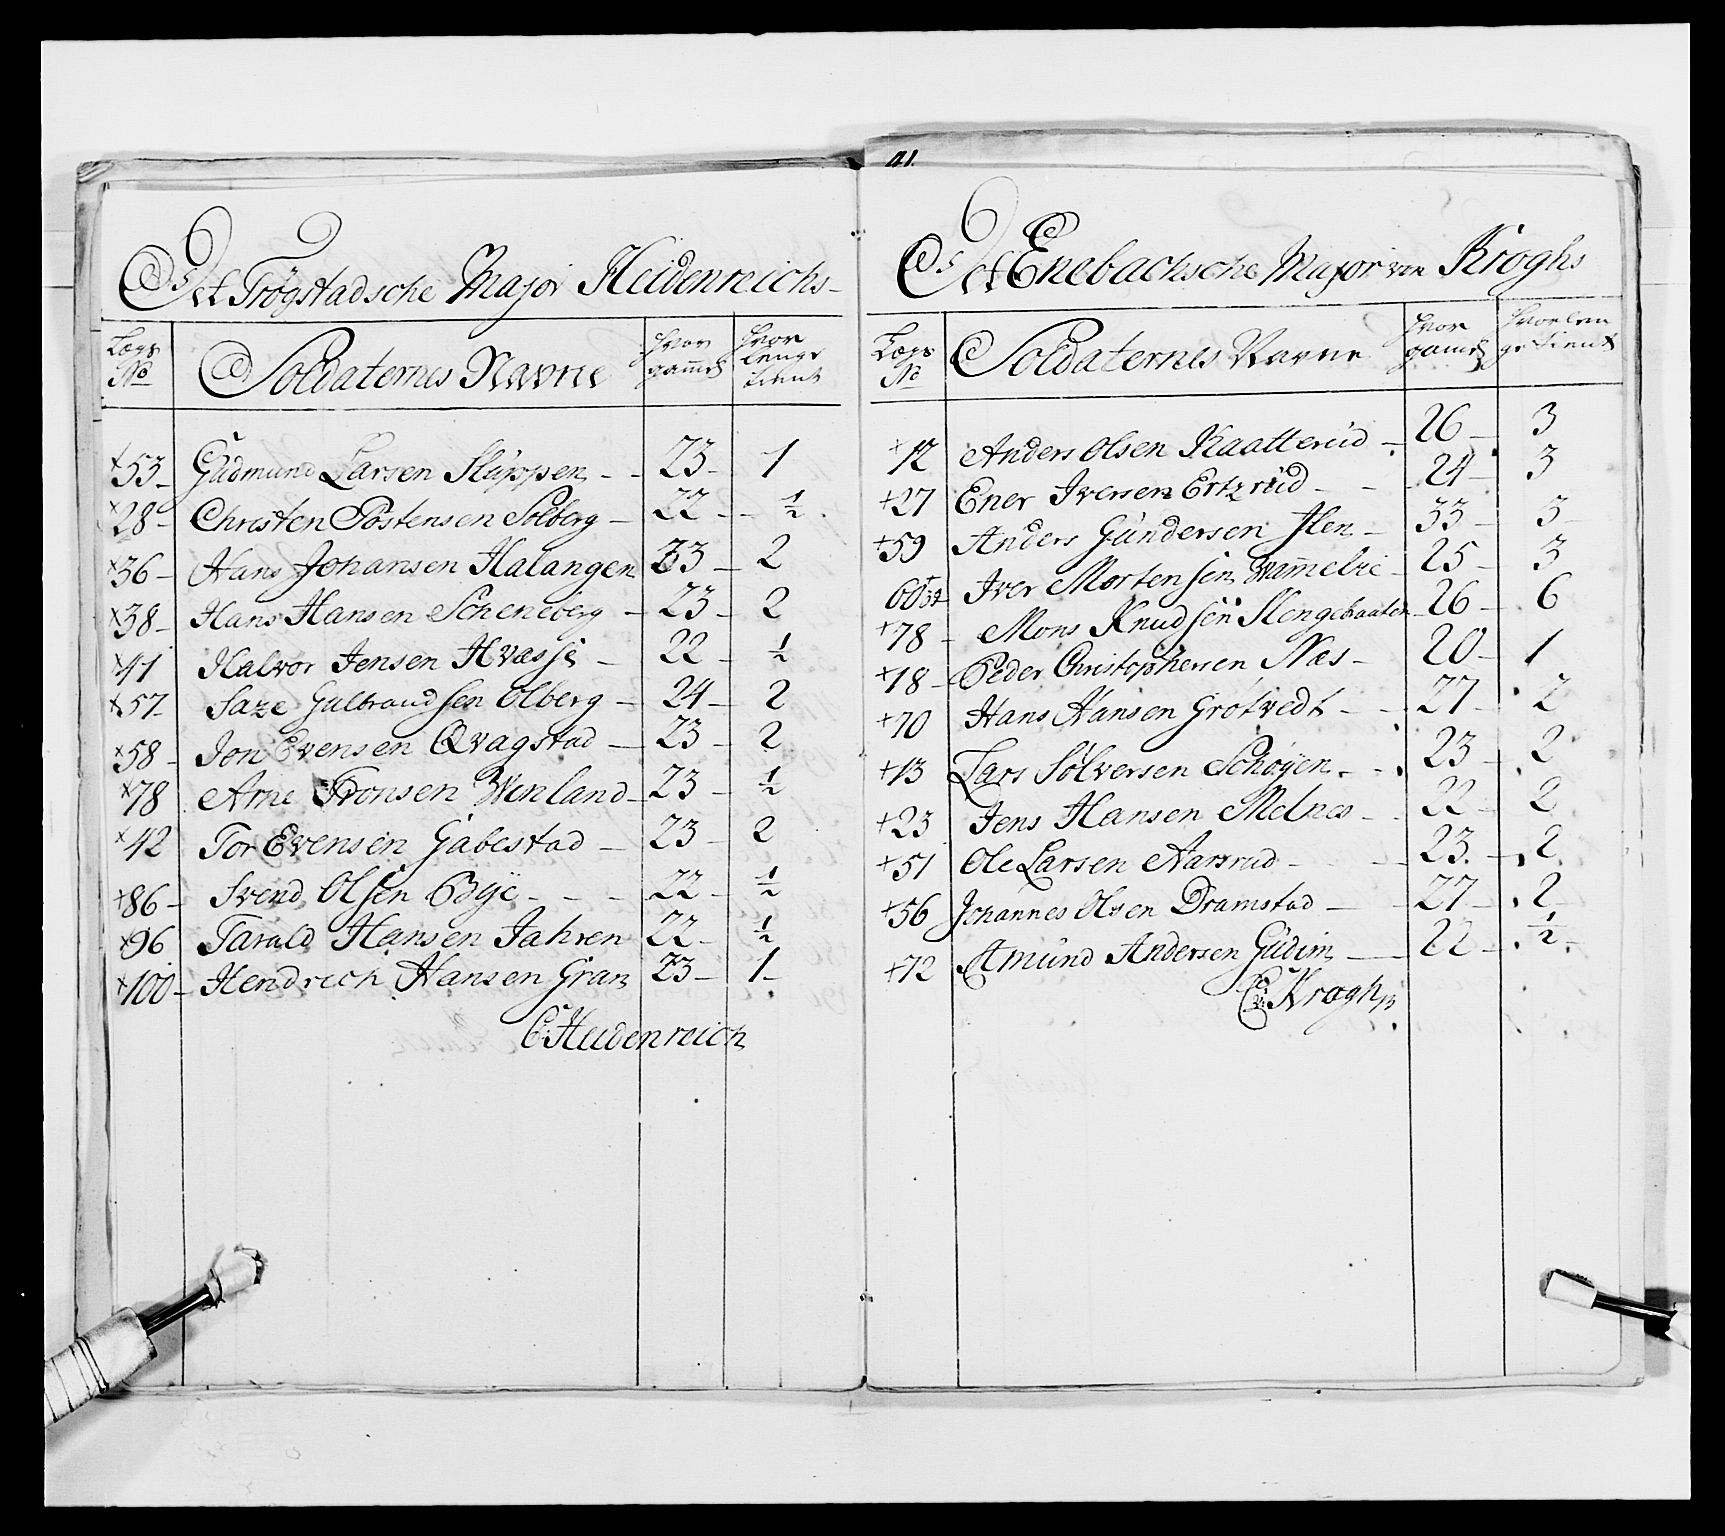 Det Trögstadsche Major Heidenreichs
Lægs No
Soldaternes Navne
hvor gamel
hvor lenge tient
+53 Gudmund Larsen Sluppen 23 1
+28 Christen Postensen Solberg 22 ½
+36 Hans Johansen Halangen 23 2
+38 Hans Hansen Scheneberg 23 2
+41 Halvor Jensen Hvasse 22 ½
+57 Saze Gulbrandsen Olberg 24 2
+58 Jon Evensen Qvagstad 23 2
+78 Arne Tronsen Wenland 23 ½
+42 Tor Evensen Gabestad 23 2
+86 Svend Olsen Bye 22 ½
+96 Tarald Hansen Jahren 22 ½
+100 Hendrich Hansen Gran 23 1
C: Heidenreich
41.
Det Enebachsche Major von Kroghs
Lægs No
Soldaternes Navne
hvor gamel
hvor len ge tient
+12 Anders Olsen Kaatterud 26 3
+27 Ener Iversen Ertzrud 24 3
+59 Anders Gundersen Ilen 33 3
60 Iver Mortensen 25 3
+78 Mons Knudsen Slengebaaten 26 6
+18 Peder Christophersen Næs 20 1
+70 Hans Hansen Grotvedt 27 2
+13 Lars Sølversen Schøyen 23 2
+23 Jens Hansen Melnes 22 2
+51 Ole Larsen Aarsrud 23 2
+56 Johannes Olsen Dramstad 27 2
+72 Amund Andersen Gudim 22 ½
C: v: Krogh